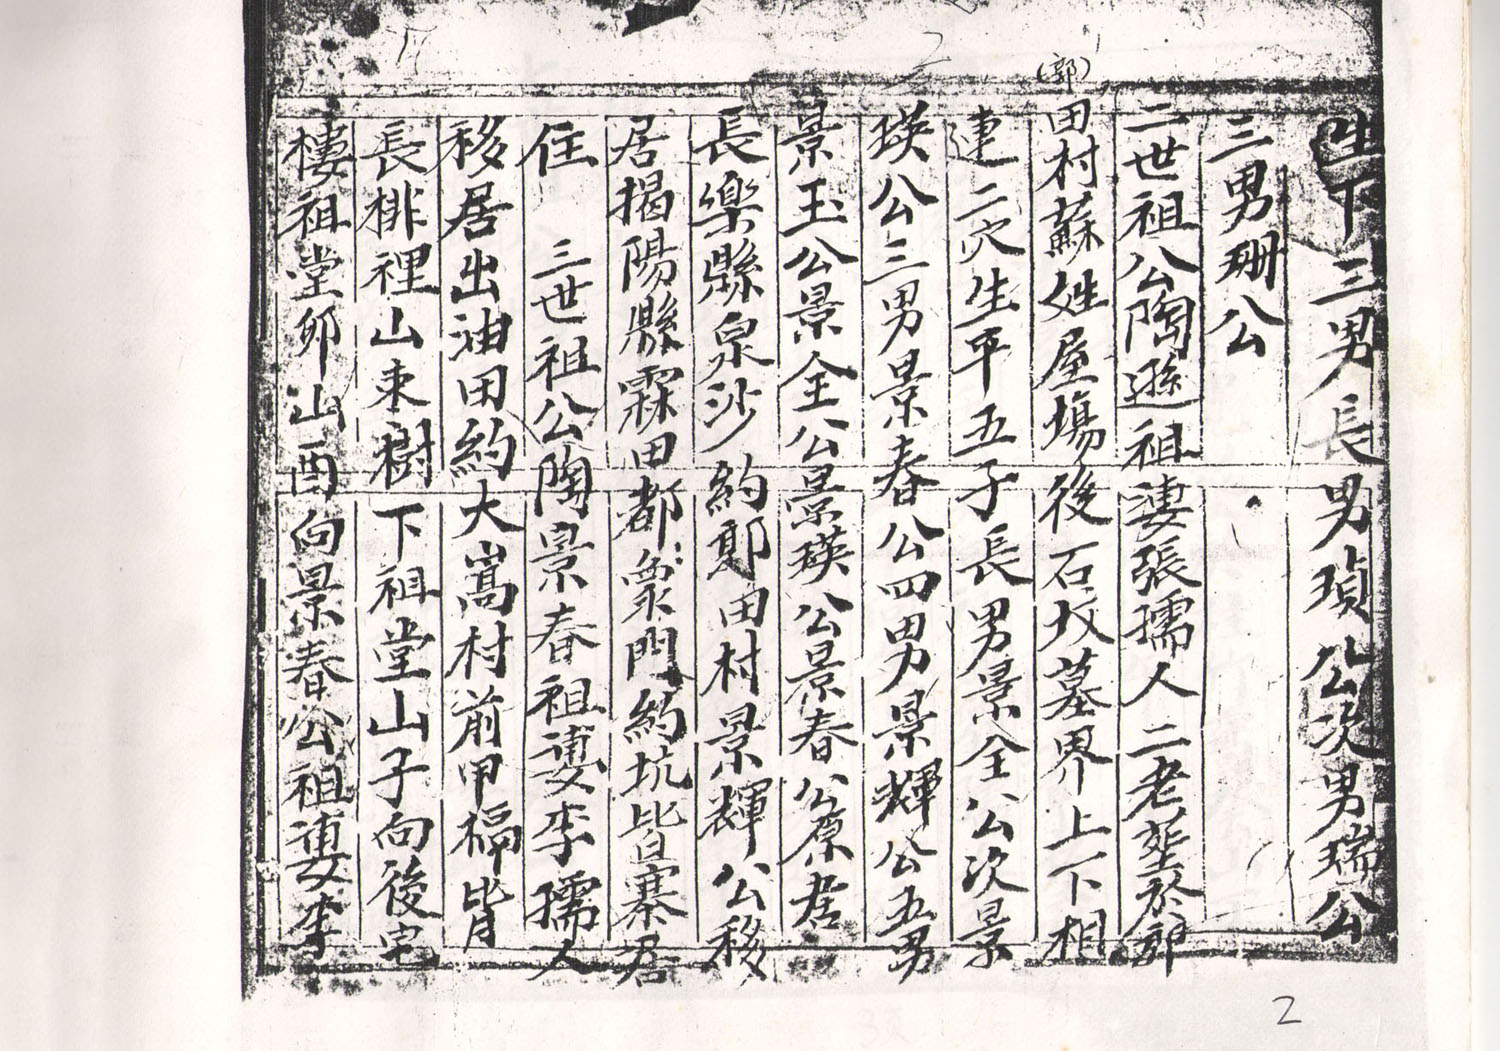 生下三男長男瑱公次男瑞公
三男珊公
二世祖公陶遜祖淒張孺人二老塟於郭
(郭)
田村蘇姓屋塲後石坟墓界上下相
連二穴生平五子長男景全公次景
瑛公三男景春公四男景輝公五男
景玉公景全公景瑛公景春公原居
長樂縣泉沙約鄚田村景輝公移
居揭陽縣霖田都象門約坑皆寨居
住 三世祖公陶景春祖淒李孺人
移居出油田約大嵩村前甲楅背
長排裡山束樹下祖堂山子向後宅
樓祖堂卯山酉向景春公祖淒李
2